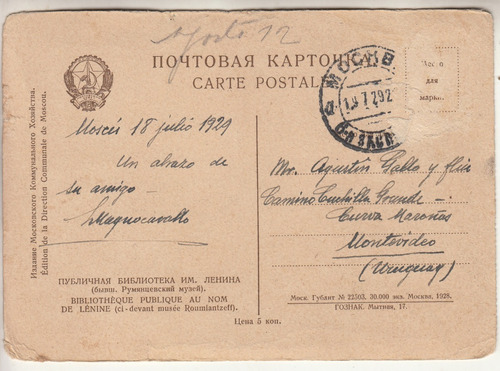 Agosto 12
ПОЧТОВАЯ КАРТОЧКА
CARTE POSTALE
МОСКВА
19 7 29
Место
для
марки.
Moscú 18 julio 1929
Un abrazo de
su amigo
Magnocavallo
Mr. Agustín Gallo y
Camino Cuchilla Grande
Curva Maroñas
Montevideo
(Uruguay)
Издание Московского Коммунального Хозяйства.
Edition de la Direction Communale de Moscou.
ПУБЛИЧНАЯ БИБЛИОТЕКА ИМ. ЛЕНИНА
(бывш. Румянцевский музей).
BIBLIOTHÈQUE PUBLIQUE AU NOM
DE LÉNINE (ci-devant musée Roumiantzeff).
Цена 5 коп.
Моск. Гублит № 22503. 30.000 экз. Москва, 1928.
ГОЗНАК. Мытная, 17.